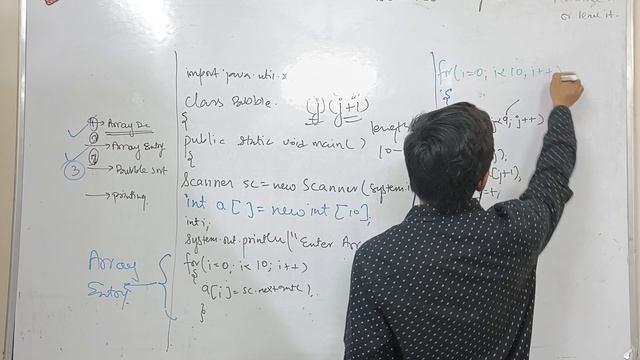 or leave it.
① Array Dec
② Array Entry
③ Bubble sort
→ printing
Array
Entry
import java.util.*
class Bubble.
{
public static void main( )
{
Scanner sc=new Scanner(System.i
int a[ ]=new int[10];
int i,
System.out.println("Enter Arr
for(i=0; i<10; i++)
{
a[i]=sc.nextInt( ),
}
(j)(j+1)
length
10-
for(i=0; i<10, i++)
{
<9, j++)
j),
[j+1),
=t,